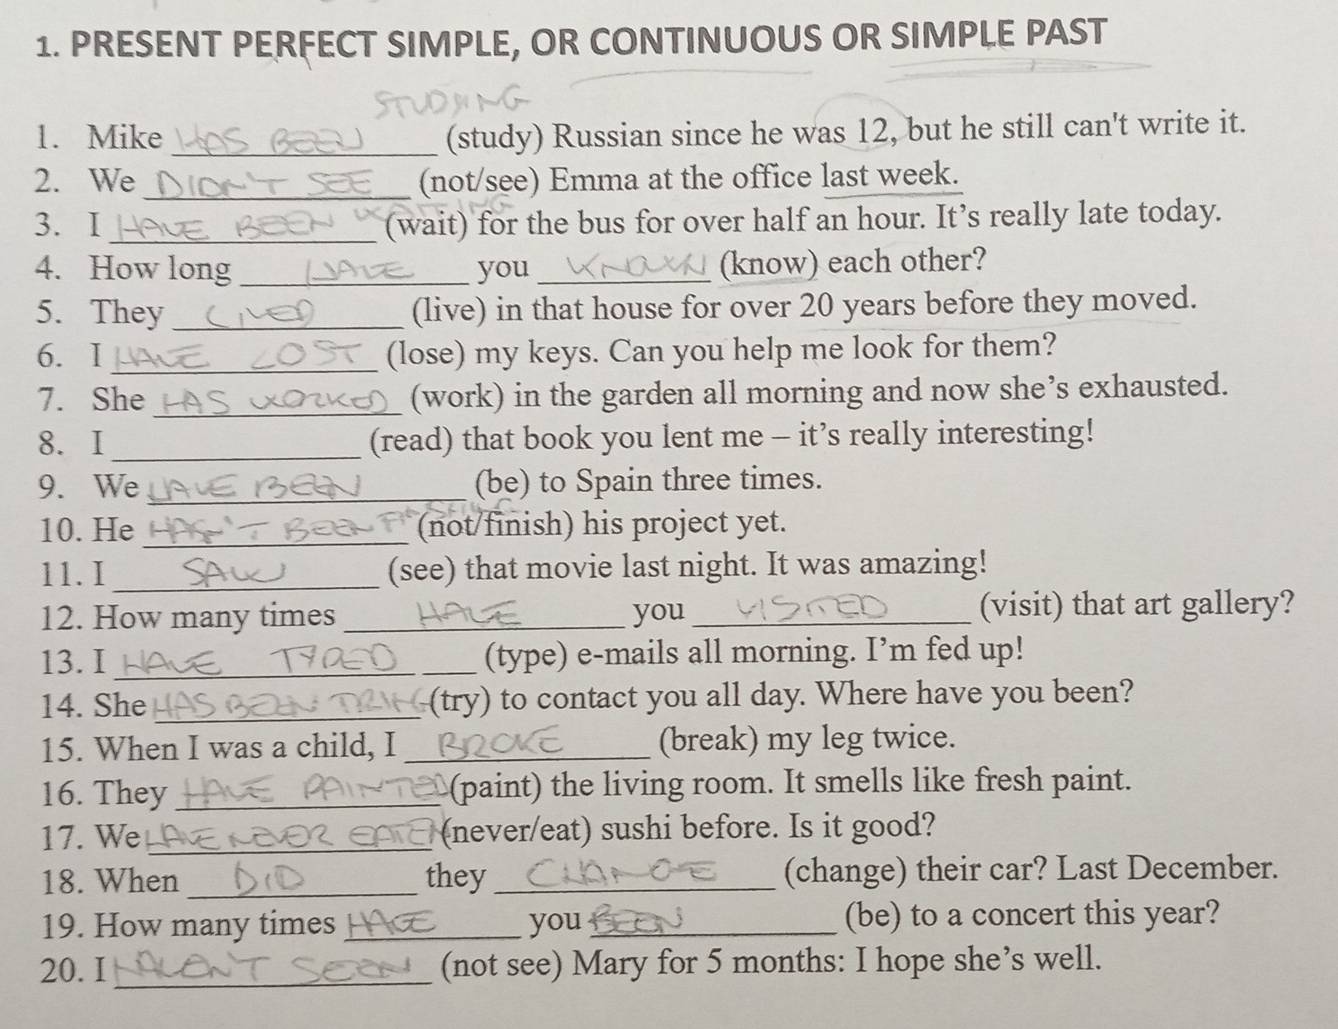 1. PRESENT PERFECT SIMPLE, OR CONTINUOUS OR SIMPLE PAST
STUDYING
1. Mike HAS BEEN (study) Russian since he was 12, but he still can't write it.
2. We DIDN'T SEE (not/see) Emma at the office last week.
3. I HAVE BEEN WAITING (wait) for the bus for over half an hour. It's really late today.
4. How long HAVE you KNOWN (know) each other?
5. They LIVED (live) in that house for over 20 years before they moved.
6. I HAVE LOST (lose) my keys. Can you help me look for them?
7. She HAS WORKED (work) in the garden all morning and now she's exhausted.
8. I ____ (read) that book you lent me – it's really interesting!
9. We HAVE BEEN (be) to Spain three times.
10. He HASN'T BEEN (not/finish) his project yet.
11. I SAW (see) that movie last night. It was amazing!
12. How many times HAVE you VISITED (visit) that art gallery?
13. I HAVE TYPED (type) e-mails all morning. I'm fed up!
14. She HAS BEEN TRING (try) to contact you all day. Where have you been?
15. When I was a child, I BROKE (break) my leg twice.
16. They HAVE PAINTED (paint) the living room. It smells like fresh paint.
17. We HAVE NEVER EATEN (never/eat) sushi before. Is it good?
18. When DID they CHANGE (change) their car? Last December.
19. How many times HAVE you BEEN (be) to a concert this year?
20. I HAVEN'T SEEN (not see) Mary for 5 months: I hope she's well.